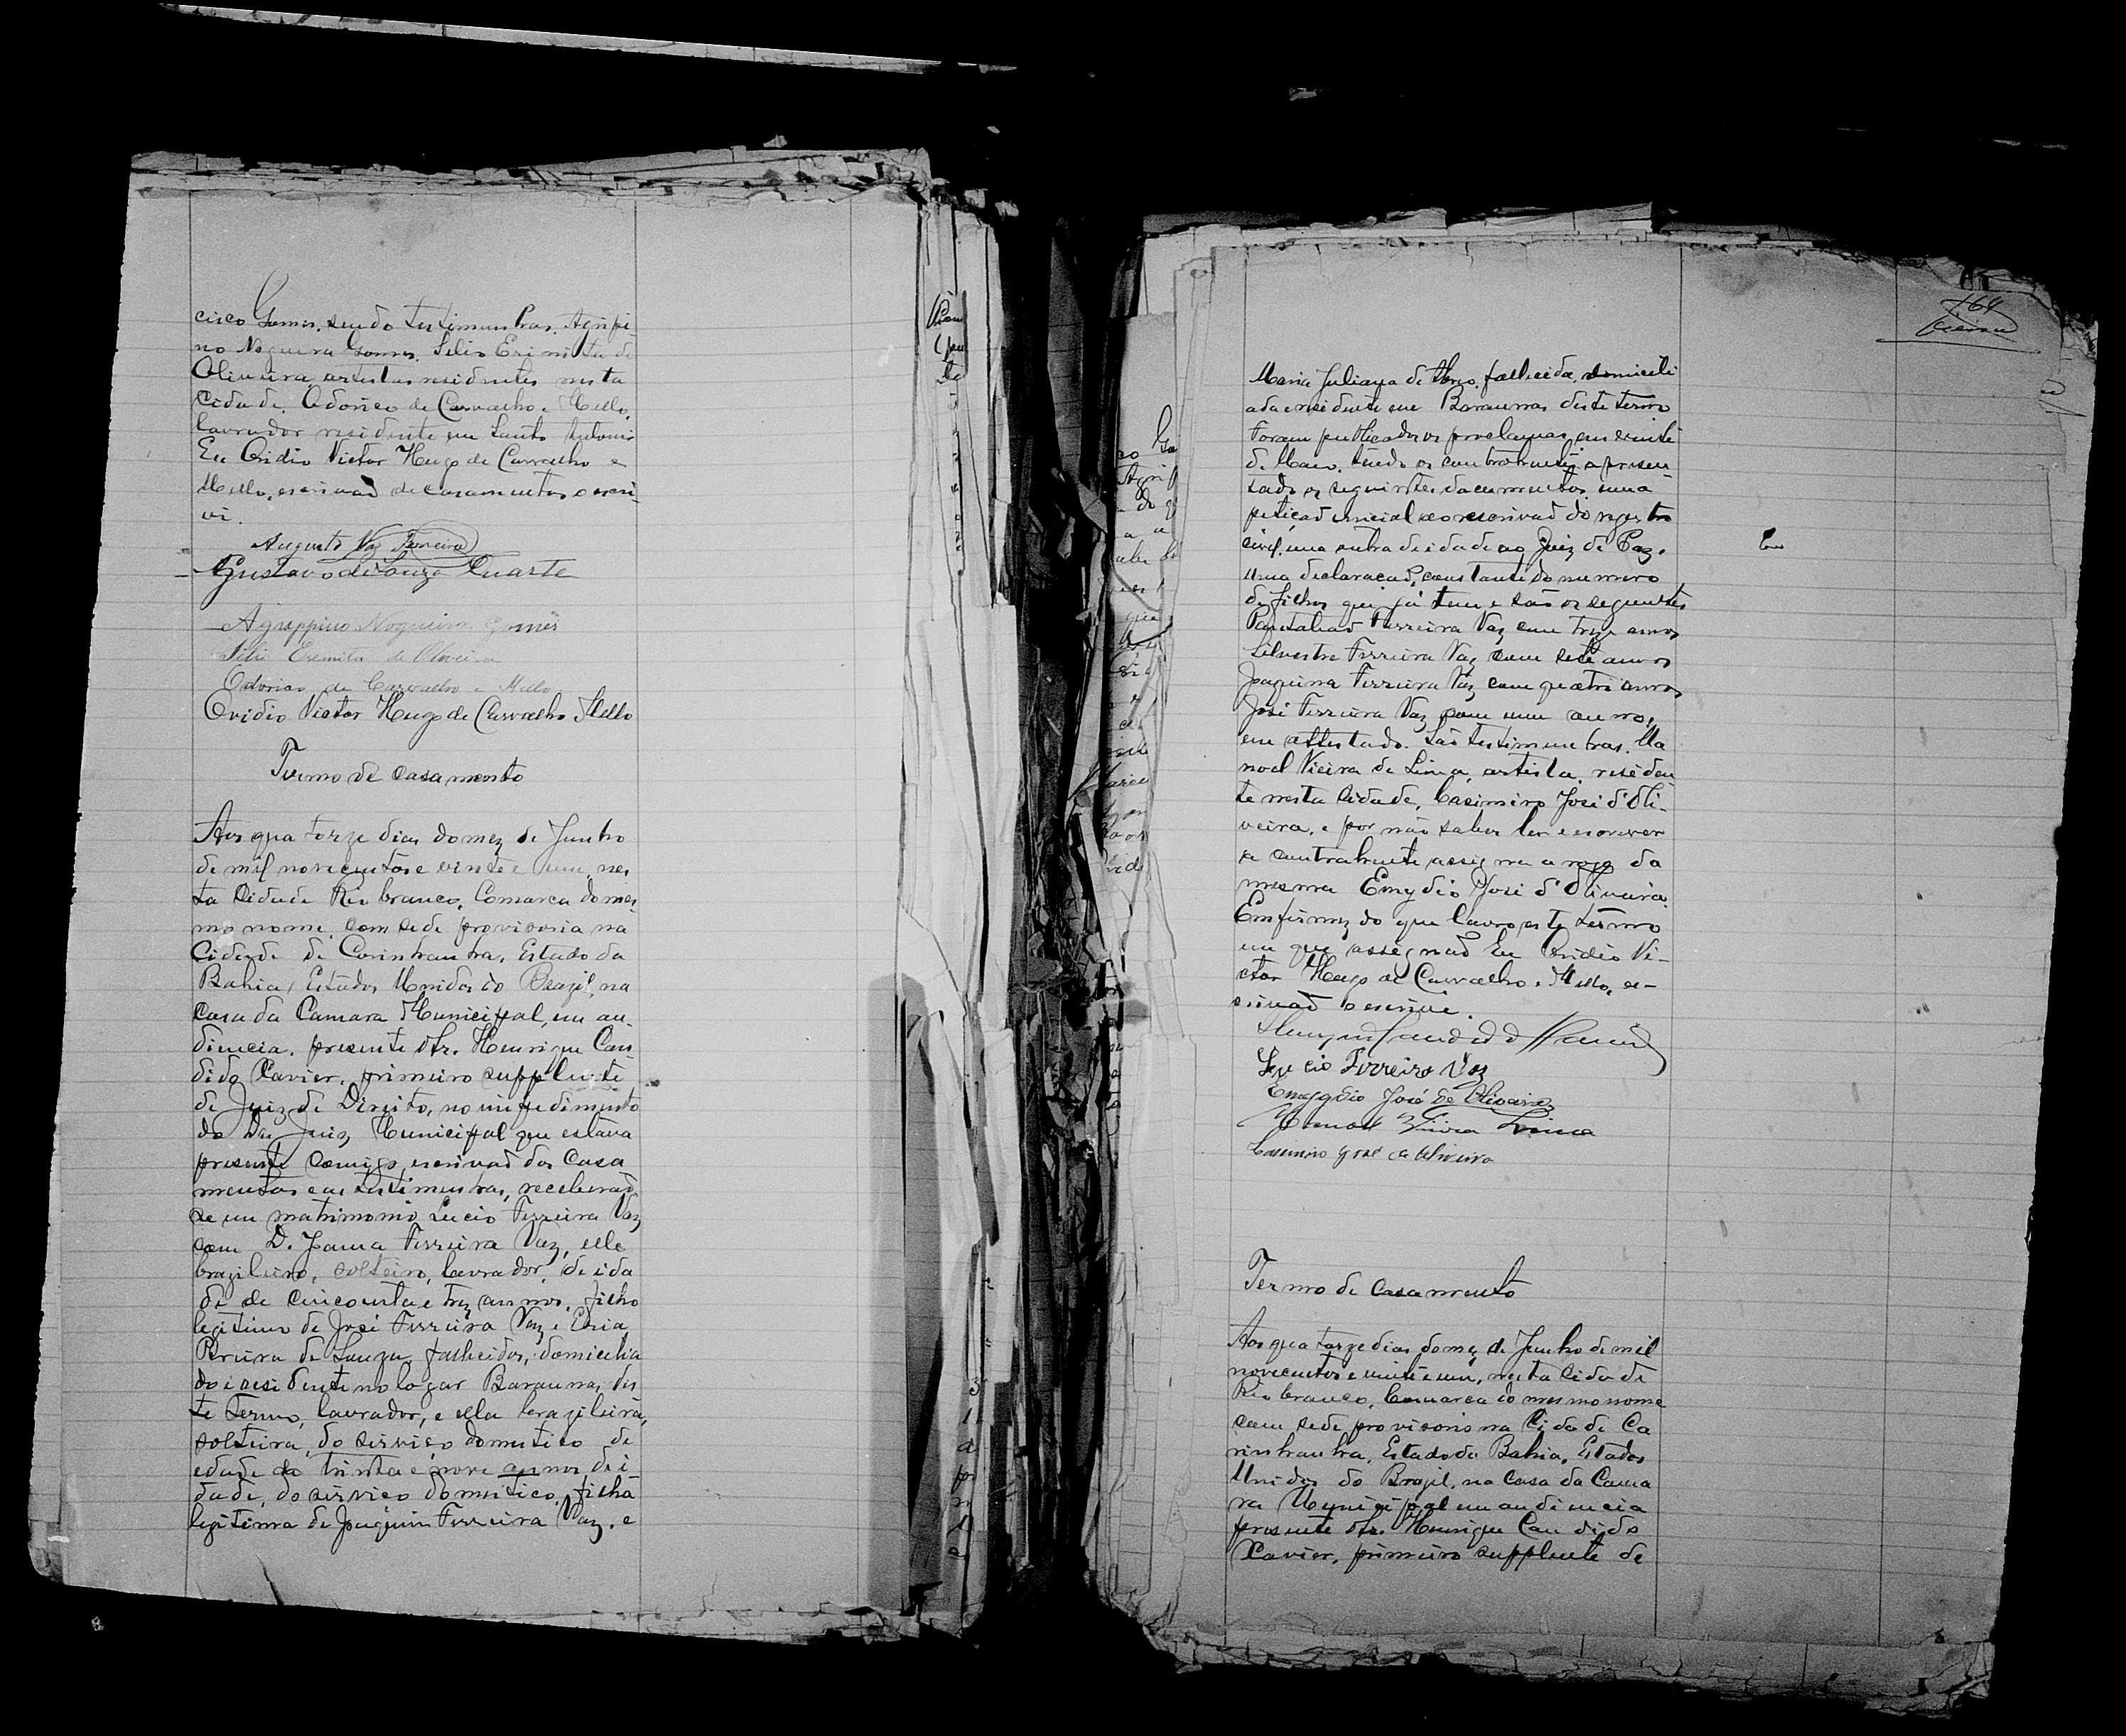 cisco Gomes, sendo testimunhas, Agripi-
no Nogueira Gomes, Silio Erimita de
Oliveira artistas residentes nesta
cidade, Odorico de Carvalho e Mello,
lavrador residente em Santo Antonio
Eu Ovidio Victor Hugo de Carvalho e
Mello, escrivaõ de casamentos o escri-
vi.
Augusto Vaz Ferreira
Gustavo de Souza Duarte
Agrippino Nogueira Gomes
Silio Eremita de Oliveira
Odorico de Carvalho e Mello
Ovidio Victor Hugo de Carvalho Mello
Termo de Casamento
Aos quatorze dias do mez de Junho
de mil novecentos e vinte e um, nes
ta Cidade Rio branco, Comarca do mes
mo nome, com sede provisoria na
Cidade de Carinhanha, Estado da
Bahia, Estados Unidos do Brazil, na
Casa da Camara Municipal, em au-
diencia, presente o Sr. Henrique Can
dido Xavier, primeiro supplente
de Juiz de Direito, no impedimento
do Dr. Juiz Municipal que estava
presente comigo escrivaõ dos Casa
mentos e as testimunhas, receberaõ
se em matrimonio Lucio Ferreira Vaz
com D. Joanna Ferreira Vaz, elle
brazileiro, solteiro, lavrador, de ida
de de cincoenta e trez annos, filho
legitimo de José Ferreira Vaz e
Pereira de Souza, falhecidos, domicilia
do e residente no logar Baraunas, des
te Termo, lavrador, e ella brazileira,
solteira, do serviço domestico de
edade de trinta e nove annos de i
dade, do serviço domestico, filha
legitima de Joaquim Ferreira Vaz, e
164
Maria Juliana de falhecida, domicili
ada e residente em Baraunas deste termo
Foram publicados os proclamas em vinte
de Maio, tendo os contrahentes apresen
tado os seguintes documentos: uma
petiçaõ inicial ao escrivaõ do registro
civil, uma outra de idade ao Juiz de Paz,
uma declaraçaõ, constante do numero
de filhos que já tem e são os seguintes
Pantaleaõ Ferreira Vaz com treze annos
Silvestre Ferreira Vaz com sete annos
Joaquina Ferreira Vaz com quatro annos
José Ferreira Vaz com um anno,
um attestado. São testimunhas, Ma
noel Vieira de Lima, artista, residen
te nesta Cidade, Casimiro José d'Oli-
veira, e por não saber ler e escrever
a contrahente assigna a rogo da
mesma Emydio José d'Oliveira.
Em firmez do que lavro este termo
em que assignaõ Eu Ovidio Vi-
ctor Hugo de Carvalho e Mello, es-
crivaõ o escrivi.
Lucio Ferreira Vaz
Emygdio José de Oliveira
Manoel Vieira Lima
Casimiro José de Oliveira
Termo de Casamento
Aos quatorze dias do mez de Junho de mil
novecentos e vinte e um, nesta Cidade de
Rio branco, Comarca do mesmo nome
com sede provisoria na Cidade Ca
rinhanha, Estado da Bahia, Estados
Unidos do Brazil, na Casa da Cama
ra Municipal em audiencia
presente o Sr. Henrique Candido
Xavier, primeiro supplente de